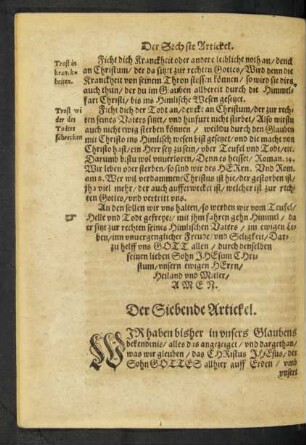 Der Sechste Artickel.
Trost in
kranckheiten.
Ficht dich Kranckheit oder andere leibliche noth an / denck
an Christum / der da sitzt zur rechten Gottes / Wird denn die
Kranckheit von seinem Thron stossen können / so wird sie dirs
auch thun / der du im Glauben allbereit durch die Himmelfart Christi / bis ins Himlische Wesen gesetzt.
Trost wider des
Todtes
schrecken
Ficht dich der Todt an / denck an Christum / der zur rechten
seines Vaters sitzt / und hinfurt nicht stirbet / Also wirstu
auch nicht ewig sterben können / weil du durch den Glauben
mit Christo ins Himlisch wesen bist gesetzt / und die macht von
Christo hast / ein Herr zu sein / uber Teufel und Todt / etc.
Darumb bistu wol unverloren / Denn es heisset / Roman. 14.
Wir leben oder sterben / so sind wir des HERRN. Und Rom.
am 8. Wer wil verdammen / Christus ist hie / der gestorben ist /
ja viel mehr / der auch aufferwecket ist / welcher ist zur rechten
Gottes / und vertritt uns.
An den sollen wir uns halten / so werden wir vom Teufel /
Helle und Todt gefreyet / mit ihm fahren gehn Himmel / da
er sitzt zur rechten seines Himlischen Vaters / im ewigen Leben / inn unvergenglicher Freude und Seligkeit / Darzu helff uns GOTT allen / durch denselben
seinen lieben Sohn JHEsum CHristum / unsern ewigen HErrn /
Heiland und Mitler /
AMEN.
Der Siebende Artickel.
WIR haben bisher in unsers Glaubens
bekendnis / alles das angezeiget / und dargethan /
was wir gleuben / das CHRistus JHEsus / der
Sohn GOTTES allhier auff Erden / und
unsers